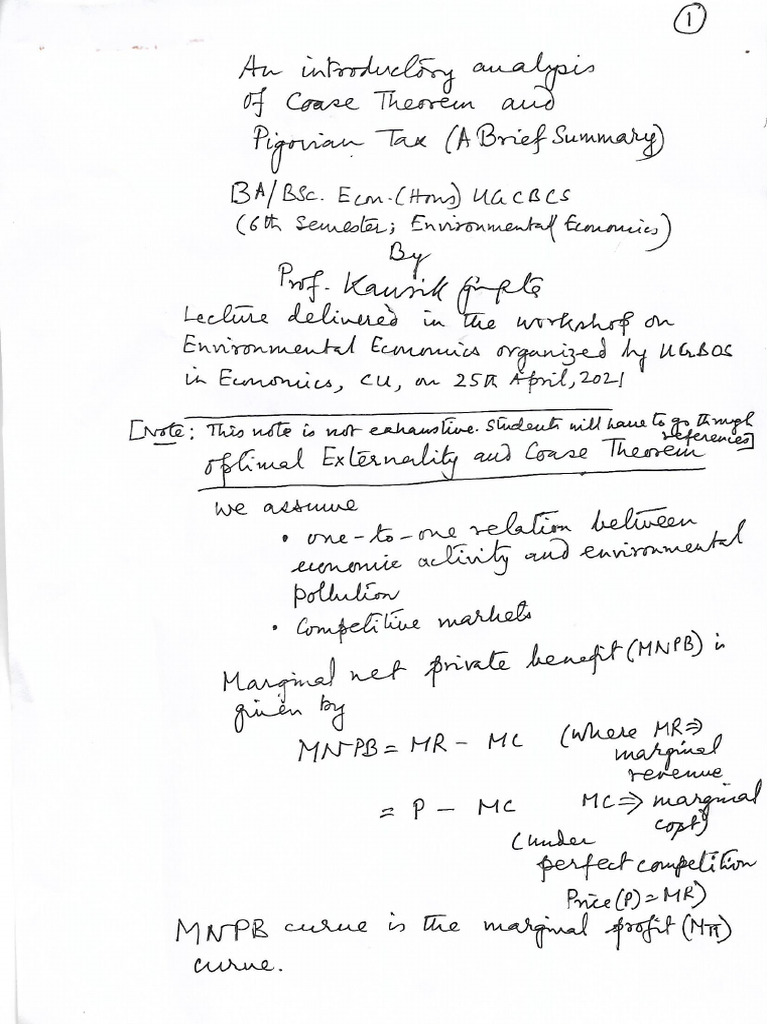 1
An introductory analysis
Of Coase Theorem and
Pigovian Tax (A Brief Summary)
BA/BSc. Econ. (Hons) UGCBCS
(6th Semester; Environmental Economics)
By
Prof. Kausik Gupta
Lecture delivered in the workshop on
Environmental Economics organized by UGBOS
in Economics, CU, on 25th April, 2021
[Note: This note is not exhaustive. Students will have to go through
references]
Optimal Externality and Coase Theorem
We assume
• one-to-one relation between
economic activity and environmental
pollution
• Competitive markets
Marginal net private benefit (MNPB) is
given by
MNPB = MR - MC (where MR ⇒
marginal
revenue
= P - MC MC ⇒ marginal
cost)
(under
perfect competition
Price (P) = MR)
MNPB curve is the marginal profit (Mπ)
curve.